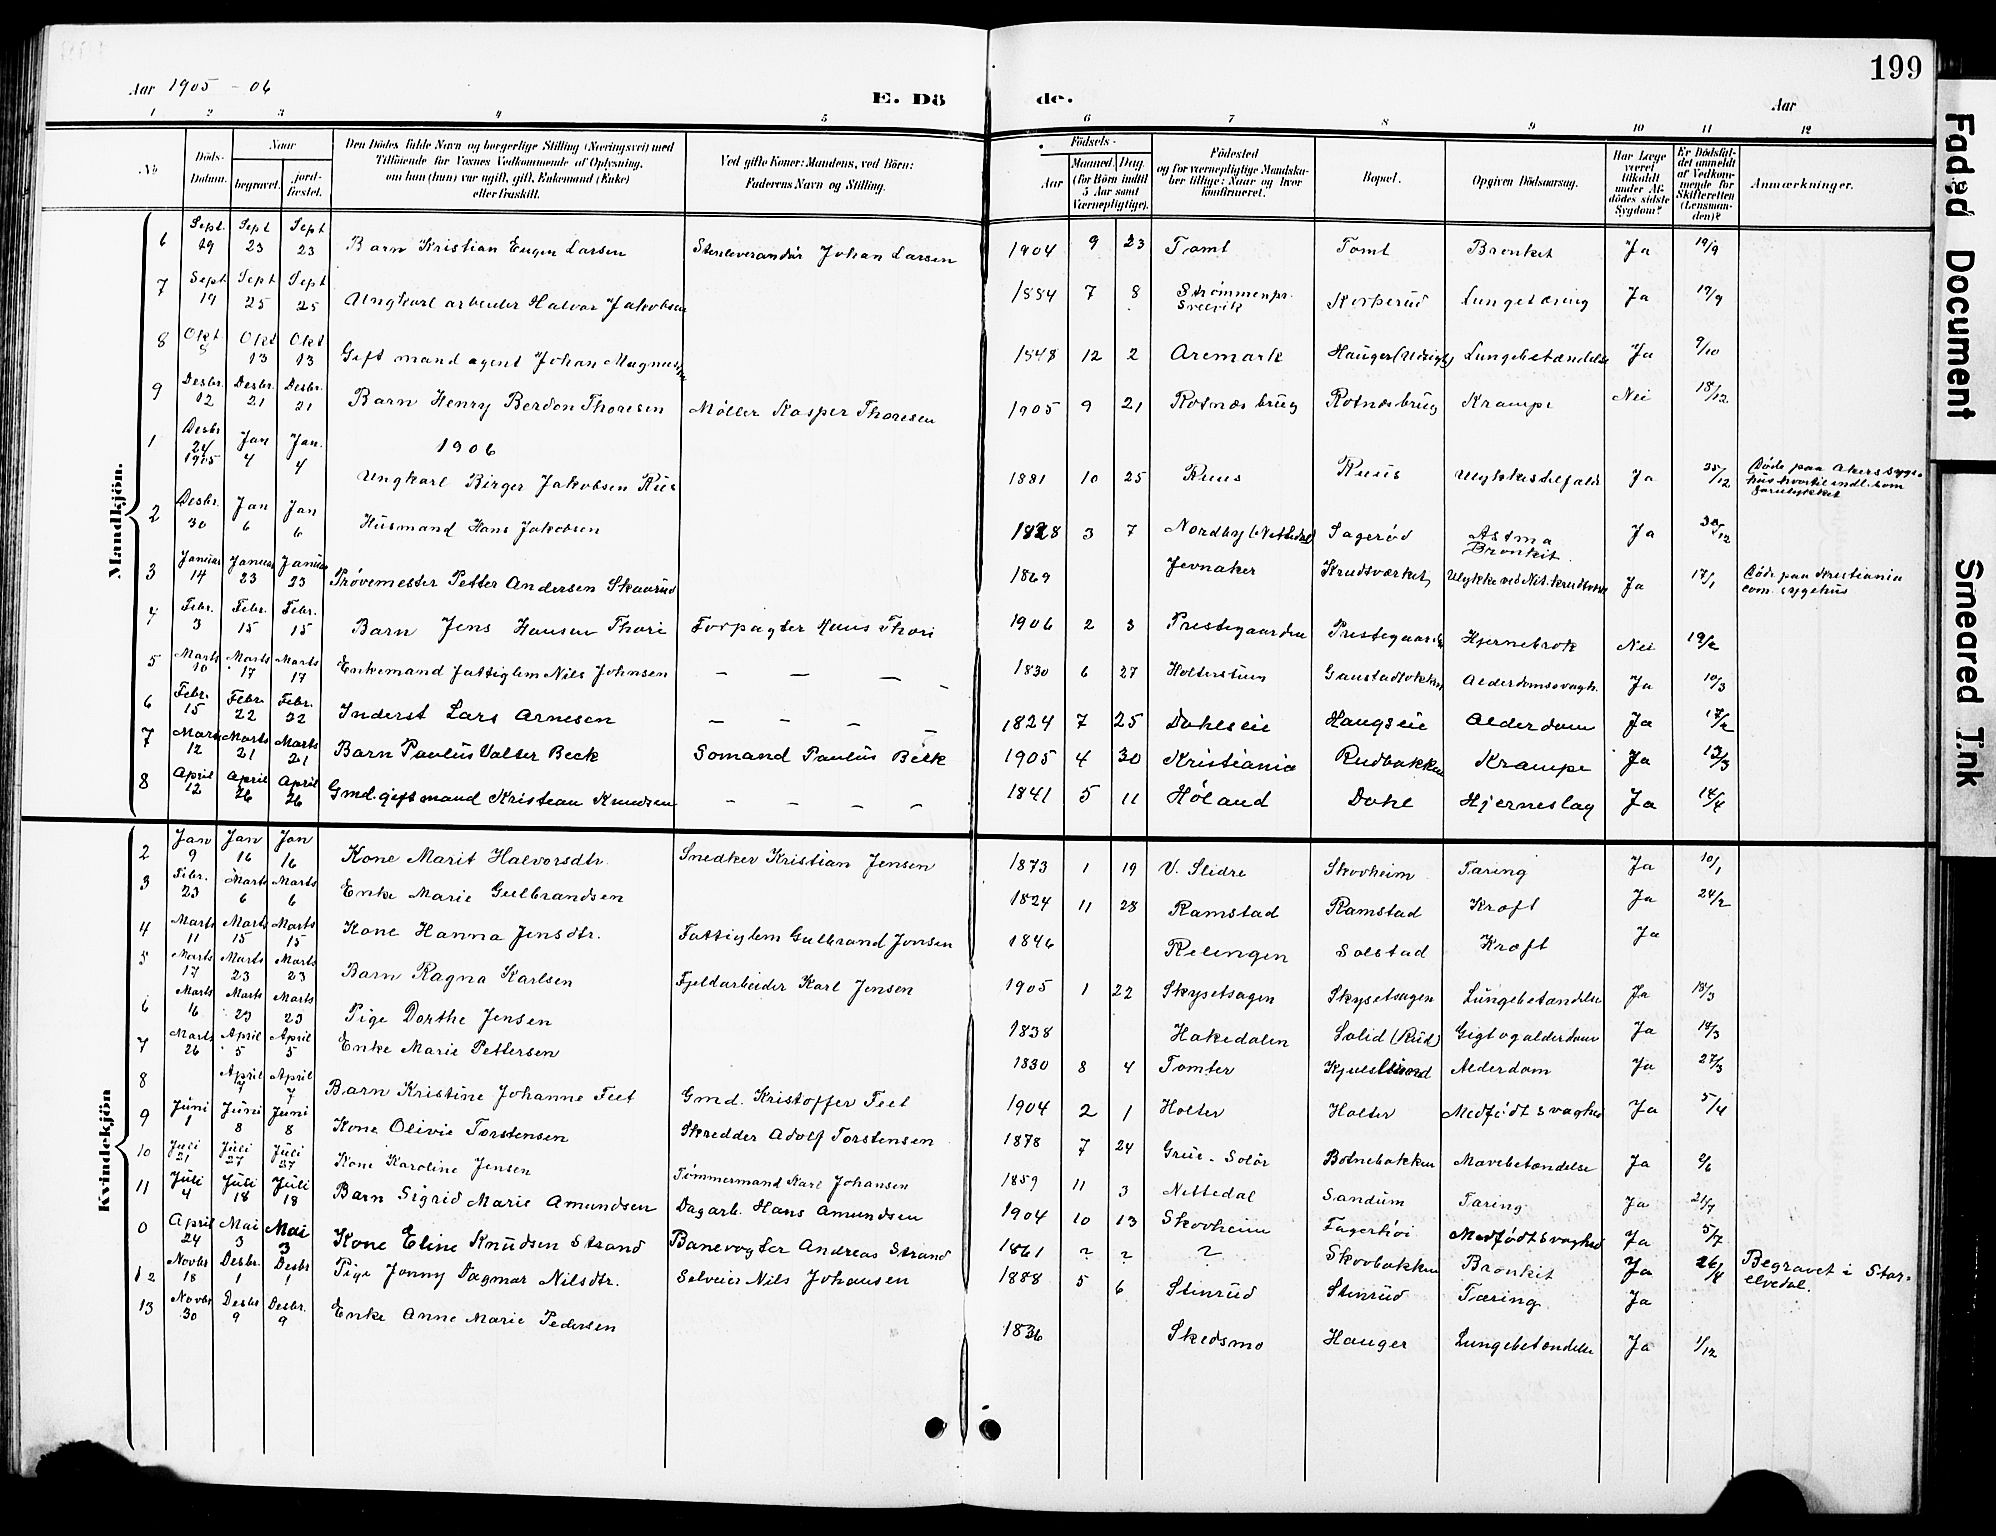 199
Aar 1905 - 06 E. Dö de. Aar
1 2 3 4 5 6 7 8 9 10 11 12
No Döds-Datum. Naar begravet. jord-fæstet. Den Dödes fulde Navn og borgerlige Stilling (Næringsvei) med Tilföiende for Voxnes Vedkommende af Oplysning, om han (hun) var ugift, gift, Enkemand (Enke) eller fraskilt. Ved gifte Koner: Mandens, ved Börn: Faderens Navn og Stilling. Födsels- Aar Maaned Dag. (for Börn indtil 5 Aar samt Værnepligtige). Födested og for værnepligtige Mandskaber tillige: Naar og hvor konfirmeret. Bopæl. Opgiven Dödsaarsag. Har Læge været tilkaldt under Afdödes sidste Sygdom? Er Dödsfaldet anmeldt af Vedkommende for Skifteretten (Lensmanden)? Anmærkninger.
Mandkjön.
6 Sept. 19 Sept 23 Sept 23 Barn Kristian Eugen Larsen Stenleverandör Johan Larsen 1904 9 23 Tomt Tomt Bronket Ja 19/9
7 Sept 19 Sept 25 Sept 25 Ungkarl arbeider Halvor Jakobsen 1884 7 8 Strömmen pr. Svelvik Korperud Lungetæring Ja 19/9
8 Okt 8 Okt 13 Okt 13 Gift mand agent Johan Magnussen 1848 12 2 Aremark Hauger Lungebetændelse Ja 9/10
9 Desbr. 12 Desbr. 21 Desbr. 21 Barn Henry Berdon Thoresen Møller Kasper Thoresen 1905 9 21 Rotnæs brug Rotnæsbrug Krampe Nei 18/12
1906
1 Desbr 24 1905 Jan 4 Jan. 4 Ungkarl Birger Jakobsen Ruus 1881 10 25 Ruus Ruus Ulykkestilfæld Ja 25/12 Døde paa Akers sygehus hvortil indl. som forulykket
2 Desbr. 30 Jan 6 Jan 6 Husmand Hans Jakobsen 1828 3 7 Nordby (Nittedal) Sagerød Astma Bronkit. Ja 30/12
3 Januar 14 Januar 23 Januar 23 Prøvemester Petter Andersen Skaarud 1869 Jevnaker Krudtværket Ulykke ved Nit. krudtværk Ja 17/1 Døde paa Kristiania com. sygehus
4 Febr. 3 Febr. 15 Febr. 15 Barn Jens Hansen Thori Forpagter Hans Thori 1906 2 3 Prestegaarden Prestegaarden Hjernebrok Nei 19/2
5 Marts 10 Marts 17 Marts 17 Enkemand fattiglem Nils Johnsen — — — — 1830 6 27 Holterstuen Gaustadbakken Alderdomssvagh. Ja 10/3
6 Febr. 15 Febr. 22 Febr. 22 Inderst Lars Arnesen — — — — 1824 7 25 Dahleseie Haugseie Alderdom Ja 17/2
7 Marts 12 Marts 21 Marts 21 Barn Paulus Valter Beck Somand Paulus Beck 1905 4 30 Kristiania Rudbakken Krampe Ja 13/3
8 April 12 April 26 April 26 Gmd. gift mand Kristian Knudsen — — — — 1841 5 11 Høland Dahl Hjerneslag Ja 14/4
Kvindekjön
2 Jan 9 Jan 16 Jan 16 Kone Marit Halvorsdtr. Snedker Kristian Jensen 1873 1 19 V. Slidre Skovheim Tæring Ja 10/1
3 Febr. 23 Marts 6 Marts 6 Enke Marie Gulbrandsen 1824 11 28 Ramstad Ramstad Kræft Ja 24/2
4 Marts 11 Marts 15 Marts 15 Kone Hanna Jensdtr. Fattiglem Gulbrand Jensen 1846 Relingen Solstad Kræft Ja
5 Marts 17 Marts 23 Marts 23 Barn Ragna Karlsen Fjeldarbeider Karl Jensen 1905 1 22 Skysetsagen Skysetsagen Lungebetændelse Ja 18/3
6 Marts 16 Marts 23 Marts 23 Pige Dorthe Jensen 1838 Hakedalen Solid (Rud) Gigt og alderdom Ja 19/3
7 Marts 26 April 5 April 5 Enke Marie Pettersen 1830 8 4 Tomter Alderdom Ja 27/3
8 April 7 April 7 Barn Kristine Johanne Feet Gmd. Kristoffer Feet 1904 2 1 Holter Holter Medfødt svaghed Ja 5/4
9 Juni 1 Juni 8 Juni 8 Kone Olivie Torstensen Skredder Adolf Torstensen 1878 7 24 Grue - Solør Botnebakken Mavebetændelse Ja 2/6
10 Juli 21 Juli 27 Juli 27 Kone Karoline Jensen Tømmermand Karl Johansen 1859 11 3 Nittedal Sandum Tæring Ja 21/7
11 Juli 4 Juli 18 Juli 18 Barn Sigrid Marie Amundsen Dagarb. Hans Amundsen 1904 10 13 Skovheim Fagerhøi Medfødt svaghed Ja 5/7
0 April 24 Mai 3 Mai 3 Kone Eline Knudsen Strand Banevogter Andreas Strand 1861 ? ? ? Skovbakken Bronkit Ja 26/4 Begravet i Storelvedal.
12 Novbr 18 Desbr. 1 Desbr 1 Pige Jonny Dagmar Nilsdtr. Selveier Nils Johansen 1888 5 6 Stenrud Stenrud Tæring Ja
13 Novbr 30 Desbr 9 Desbr. 9 Enke Anne Marie Pedersen 1836 Skedsmo Hauger Lungebetændelse Ja 1/12
Faded Document
Smeared Ink